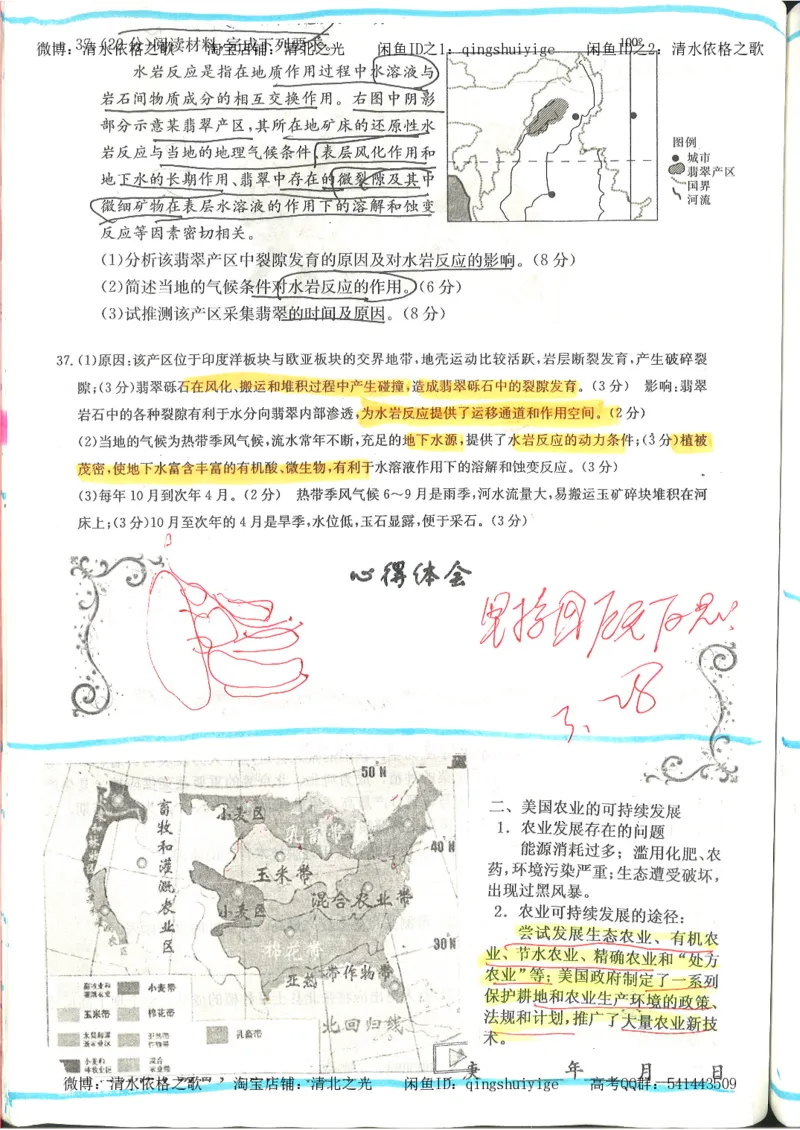 37.(22分)阅读材料,完成下列要求。
微博:清水依格之歌 淘宝店铺:清北之光 闲鱼ID之1:qingshuiyige 闲鱼ID之2:清水依格之歌
水岩反应是指在地质作用过程中水溶液与
岩石间物质成分的相互交换作用。右图中阴影
部分示意某翡翠产区,其所在地矿床的还原性水
岩反应与当地的地理气候条件、表层风化作用和
地下水的长期作用、翡翠中存在的微裂隙及其中
微细矿物在表层水溶液的作用下的溶解和蚀变
反应等因素密切相关。
100°
图例
城市
翡翠产区
国界
河流
(1)分析该翡翠产区中裂隙发育的原因及对水岩反应的影响。(8分)
(2)简述当地的气候条件对水岩反应的作用。(6分)
(3)试推测该产区采集翡翠的时间及原因。(8分)
37.(1)原因:该产区位于印度洋板块与欧亚板块的交界地带,地壳运动比较活跃,岩层断裂发育,产生破碎裂
隙;(3分)翡翠砾石在风化、搬运和堆积过程中产生碰撞,造成翡翠砾石中的裂隙发育。(3分) 影响:翡翠
岩石中的各种裂隙有利于水分向翡翠内部渗透,为水岩反应提供了运移通道和作用空间。(2分)
(2)当地的气候为热带季风气候,流水常年不断,充足的地下水源,提供了水岩反应的动力条件;(3分)植被
茂密,使地下水富含丰富的有机酸、微生物,有利于水溶液作用下的溶解和蚀变反应。(3分)
(3)每年10月到次年4月。(2分) 热带季风气候6~9月是雨季,河水流量大,易搬运玉矿碎块堆积在河
床上;(3分)10月至次年的4月是旱季,水位低,玉石显露,便于采石。(3分)
心得体会
50°N
40°N
30°N
畜牧和灌溉农业区
小麦区
乳畜带
玉米带
混合农业带
小麦区
棉花带
亚热带作物带
北回归线
小麦带
玉米带
棉花带
乳畜带
二、美国农业的可持续发展
1.农业发展存在的问题
能源消耗过多;滥用化肥、农
药,环境污染严重;生态遭受破坏,
出现过黑风暴。
2.农业可持续发展的途径:
尝试发展生态农业、有机农
业、节水农业、精确农业和“处方
农业”等;美国政府制定了一系列
保护耕地和农业生产环境的政策、
法规和计划,推广了大量农业新技
术。
年 月 日
微博:清水依格之歌 淘宝店铺:清北之光 闲鱼ID:qingshuiyige 高考QQ群:541443509